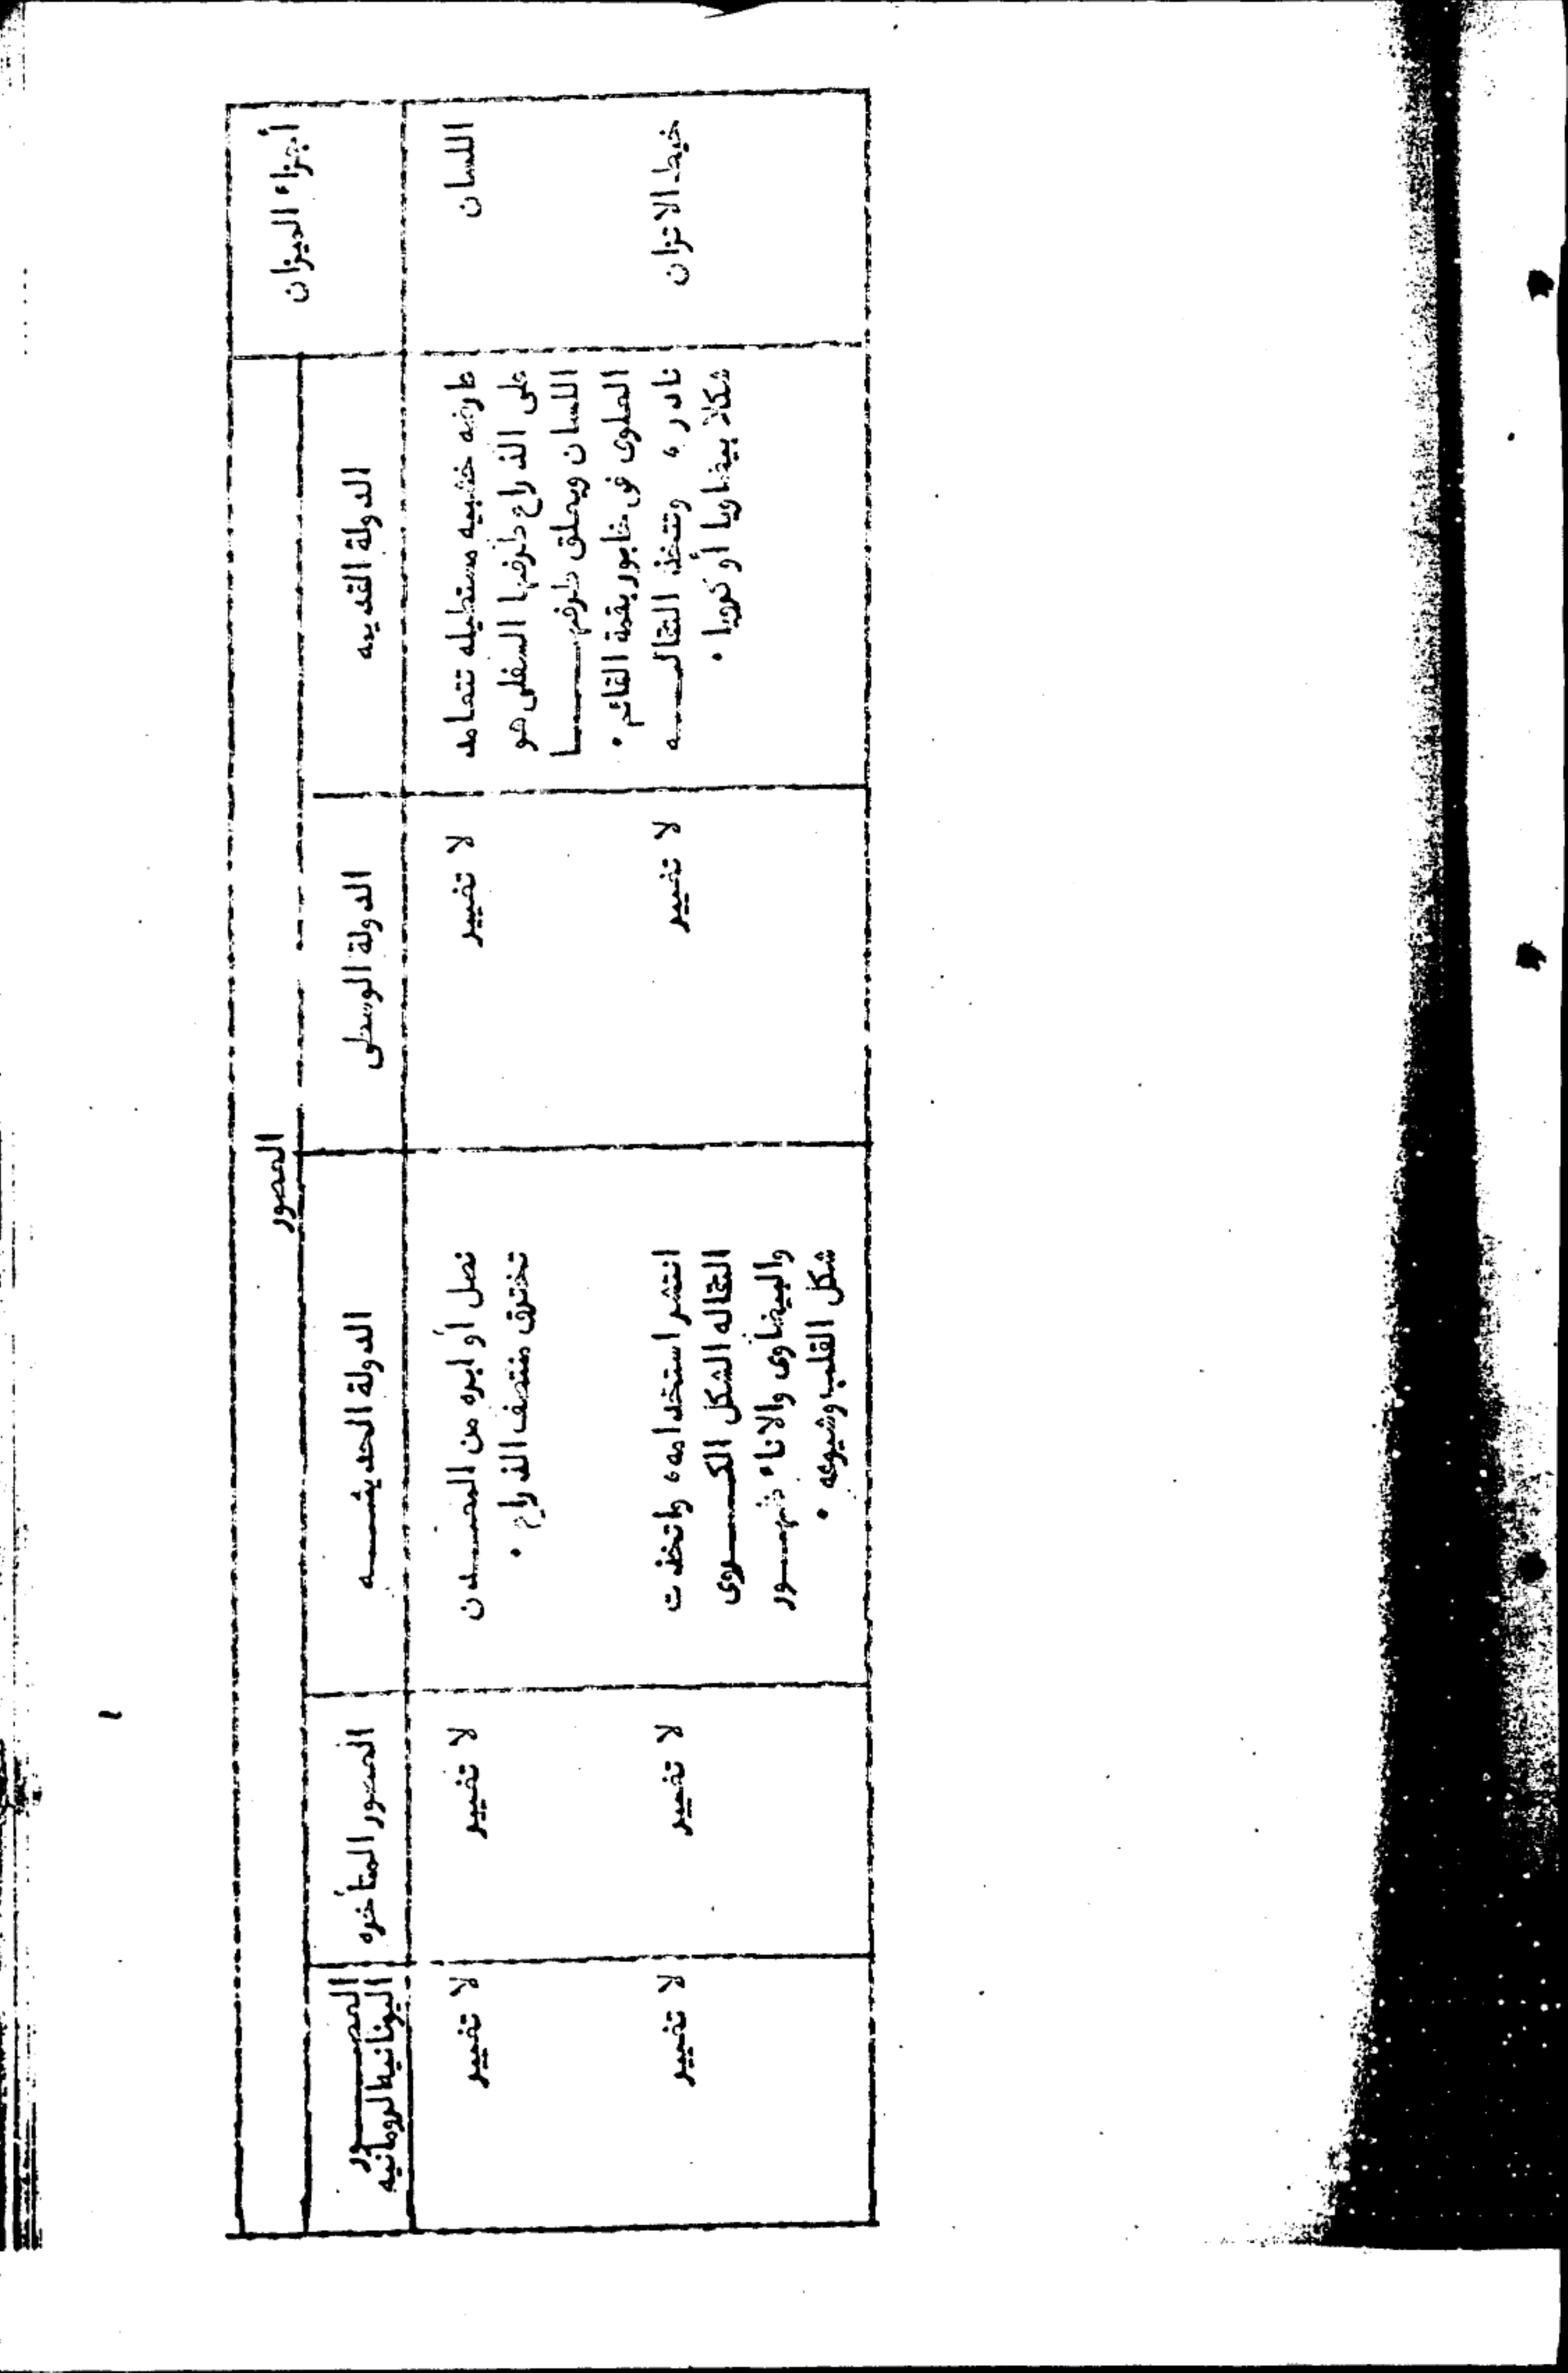 العصور
أجزاء الميزان
الدولة القديمه
الدولة الوسطى
الدولة الحديثـــه
العصور المتأخره
العصـــور
اليونانيه الرومانيه
اللسان
عارضه خشبيه مستطيله تتعامد
على الذراع طرفها السفلى هو
اللسان ويعلق طرفهـــــا
العلوى فى خابور بقمة القائم .
لا تغيير
نصل أو ابره من المعـــدن
تخترق منتصف الذراع .
لا تغيير
لا تغيير
خيط الاتزان
نادر ، وتتخذ الثقالـــه
شكلا بيضاويا أو كرويا .
لا تغيير
انتشر استخدامه ، واتخذت
الثقاله الشكل الكـــروى
والبيضاوى والاناء ظهـــور
شكل القلب وشيوعه .
لا تغيير
لا تغيير